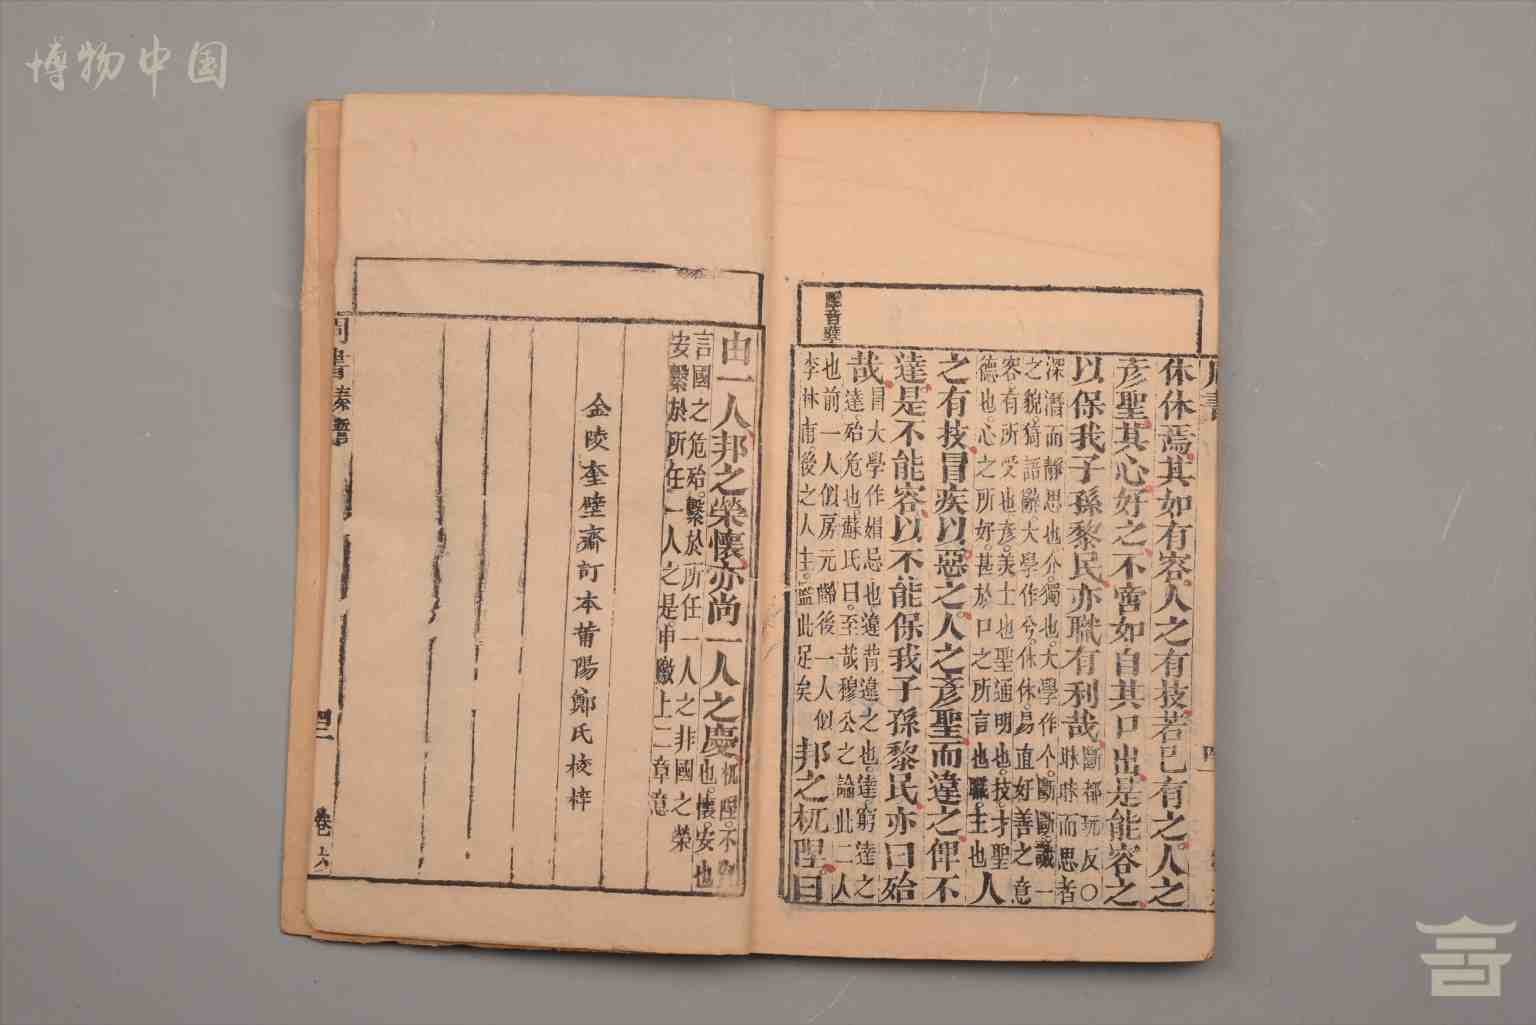 博物中国
休休焉其如有容人之有技若已有之人之
彥聖其心好之不啻如自其口出是能容之
以保我子孫黎民亦職有利哉
斷都玩反○
昧昧而思者
深潛而靜思也介獨也大學作个斷斷誠一
之貌猗語辭大學作兮休休易直好善之意
容有所受也彥美士也聖通明也技才聖
德也心之所好甚於口之所言也職主也
人
之有技冒疾以惡之人之彥聖而違之俾不
達是不能容以不能保我子孫黎民亦曰殆
哉
冒大學作媢忌也違背違之也達窮達之
達殆危也蘇氏曰至哉穆公之論此二人
也前一人似房元齡後一人似
李林甫後之人主監此足矣
邦之杌隉曰
由一人邦之榮懷亦尚一人之慶
杌隉不
也懷安也
言國之危殆繫於所任一人之非國之榮
安繫於所任一人之是申繳上二章意
金陵奎壁齋訂本莆陽鄭氏校梓
周書秦誓
四二
卷六